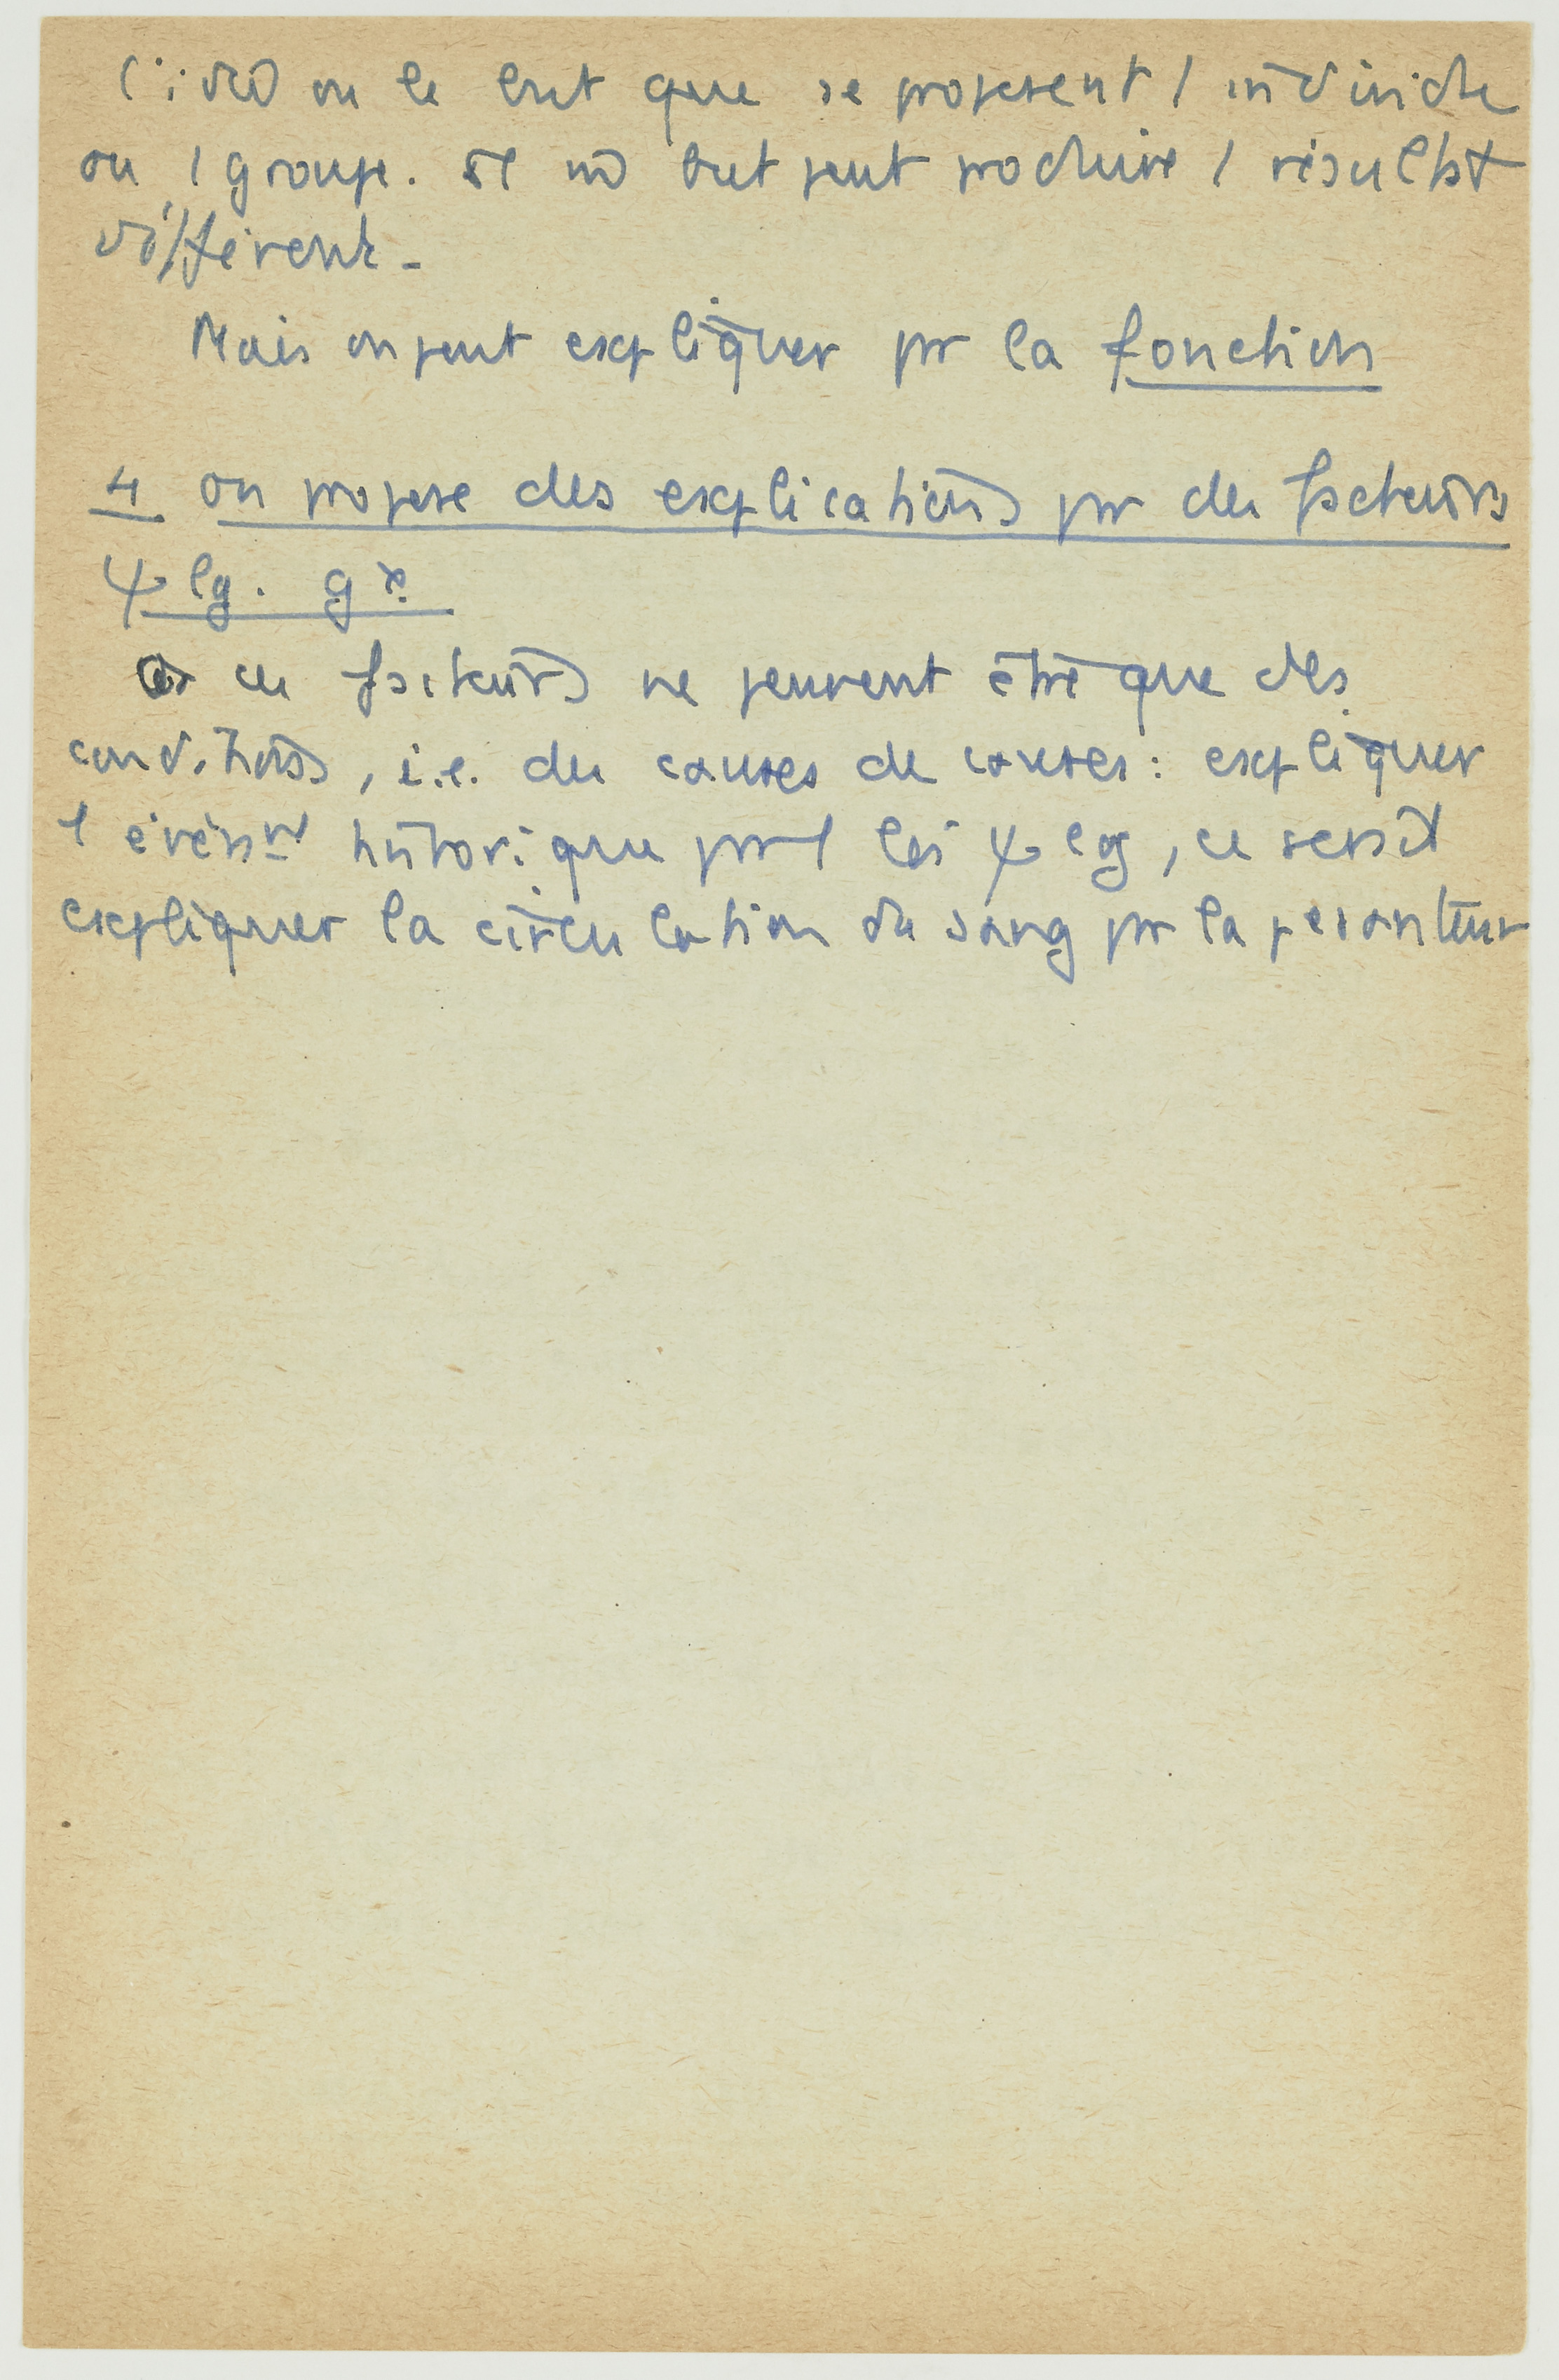 l'idée ou le but que se proposent 1 individu
ou 1 groupe. Et un but peut produire 1 résultat
différent.
Mais on peut expliquer pr la fonction
4 on propose des explications pr des facteurs
ψlg. gx
ces facteurs ne peuvent être que des
conditions, i.e. des causes de causes : expliquer
1 événmt historique pr 1 loi ψlg, ce serait
expliquer la circulation du sang pr la pesanteur